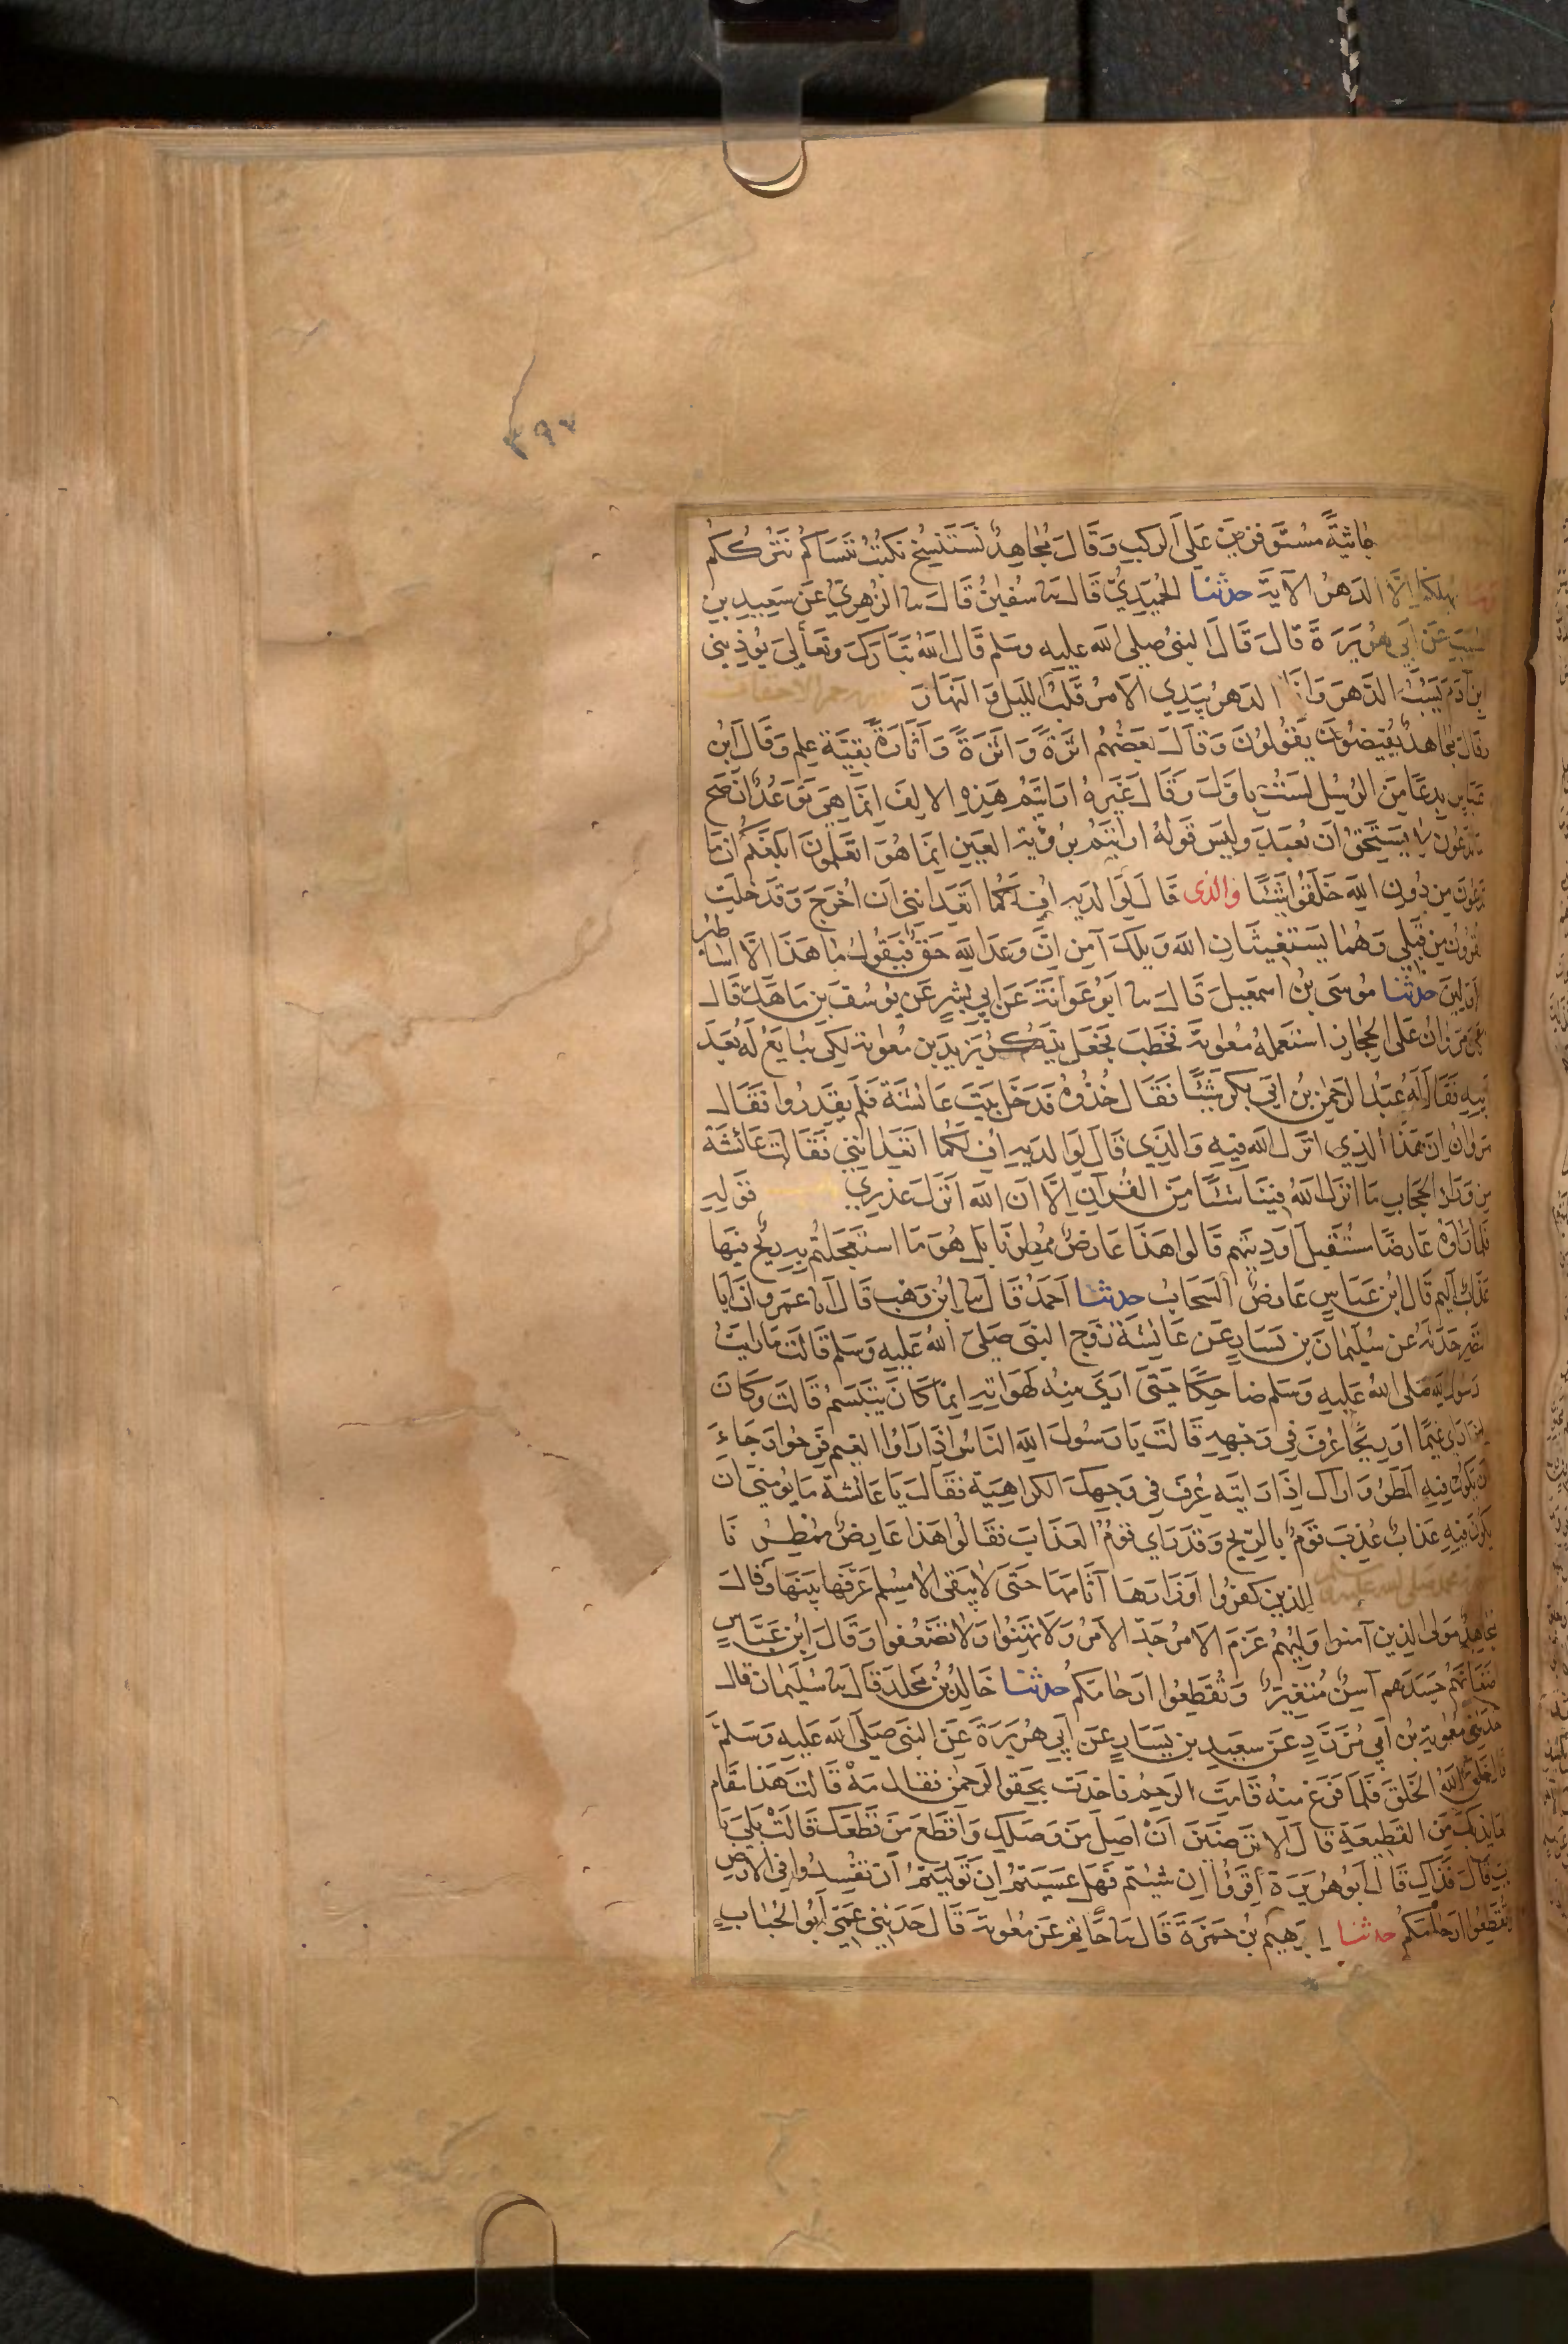 ٣٩٧
جاثِيَةً مُسْتَوفِزِينَ عَلَى الرُّكَبِ وَقَالَ مُجَاهِدٌ نَسْتَنْسِخُ نَكْتُبُ نَنْسَاكُمْ نَتْرُكُكُمْ
وما يهلكنا إِلَّا الدهرُ الآية حدثنا الحُمَيدِيُّ قَالَ ثنا سُفينُ قَالَ ثنا الزُّهرِيُّ عَن سَعِيدِ بنِ
المسيب عَن أَبِي هُرَيرَةَ قَالَ قَالَ النبيُّ صلى الله عليه وسلم قال اللهُ تَبَارَكَ وتعالَى يُؤذِينِي
ابن آدَمَ يَسُبُّ الدَّهرَ وَأَنَا الدهرُ بِيَدِي الأمرُ قَلِّبُ الليلَ وَالنَّهَارَ
وقال مُجَاهدٌ يُفِيضُونَ يَقُولُونَ وَقَالَ بعضُهُم أَثَرَةً وَأُثْرَةً وَأَثَارَةً بَقِيَّة علم وَقَالَ ابنُ
عباس بِدعَا مِنَ الرُّسُلِ لستُ بِأوَّلَ وَقَالَ غَيرهُ ارَايتُم هَذِهِ الالِف إنما هِيَ تَوَعُّدٌ ان صَحَّ
ما تَدعُونَ لا يَستَحِقُّ أَن يُعبَدَ وليسَ قَولُهُ ارايتُم بِرُؤْيَة العَينِ إنما هُوَ اتَعلَمُونَ ابلَغَكُم أن ما
تدعون مِن دُونِ اللهِ خَلَقُوا شَيئًا والذي قَالَ لِوَالدَيهِ أُفٍّ لَكُمَا أَتَعِدَانِنِي أَن أُخرَجَ وَقَد خَلَتِ
القُرُونُ مِن قَبلِي وَهُمَا يَستَغِيثَانِ اللهَ وَيلَكَ آمِن إِنَّ وَعدَ اللهِ حَقٌّ فَيَقُولُ مَا هَذَا إِلَّا أساطير
الاولين حدثنا مُوسَى بنُ اسمعِيلَ قَالَ ثنا أَبُو عَوَانَةَ عَن أَبِي بِشرٍ عَن يُوسُفَ بنِ مَاهَكَ قَالَ
كان مَروَانُ عَلَى الحِجَازِ استَعمَلَهُ مُعوِيَةُ فَخَطَبَ فجَعَلَ يَذكُرُ يَزِيدَ بن مُعوِيَةَ لِكَي يُبَايَعَ لَهُ بَعدَ
أبيهِ فَقَالَ لَهُ عَبدُ الرَّحمنِ بنُ أَبِي بكرٍ شَيئًا فَقَالَ خُذُوهُ فَدَخَلَ بَيتَ عَائشَةَ فَلَم يَقدِرُوا فَقَالَ
مَروَانُ إِنَّ هَذَا الَّذِي أَنزَلَ اللهُ فِيهِ وَالَّذِي قَالَ لِوَالدَيهِ أُفٍّ لَكُمَا أتَعِدَانِنِي فَقَالَت عَائشَةُ
مِن وَرَاءِ الحِجَابِ مَا أنزَلَ اللهُ فِينَا شَيئًا مِنَ القُرآنِ إِلَّا أَنَّ اللهَ أَنزَلَ عُذرِي قَولِهِ
فَلَمَّا رَأَوهُ عَارِضًا مُستَقبِلَ أَودِيَتِهِم قَالُوا هَذَا عَارِضٌ مُمطِرُنَا بَل هُوَ مَا استَعجَلتُم بِهِ رِيحٌ فِيهَا
عَذَابٌ أليم قَالَ ابنُ عَبَاسٍ عَارِضٌ السَحَابُ حدثنا أَحمَدُ قَالَ ثنا ابنُ وَهب قَالَ أنا عَمرو أَنَّ أَبَا
النضر حَدَّثَهُ عن سُلَيمَانَ بنِ يَسَارٍ عَن عَائشَةَ زَوجِ النبيِّ صَلَّى اللهُ عَلَيهِ وَسَلَّمَ قَالَت مَا رَايتُ
رَسُولَ اللهِ صَلَّى اللهُ عَلَيهِ وَسَلَّم ضَاحِكًا حَتَّى أَرَى مِنهُ لَهَوَاتِهِ إِنَّمَا كَانَ يَتَبَسَّمُ قَالَت وَكَانَ
اذا رأى غَيمًا أَو رِيحًا عُرِفَ فِي وَجهِهِ قَالَت يَا رَسُولَ اللهِ النَّاسُ إِذَا رَأَوُا الغَيمَ فَرِحُوا رَجَاءَ
أَن يَكُونَ فِيهِ المَطَرُ وَأَرَاكَ إِذَا رَايتَه عُرِفَ فِي وَجهِكَ الكَرَاهِيَة فَقَالَ يَا عَائشَةُ مَا يُؤمِنِّي أَن
يَكُونَ فِيهِ عَذَابٌ عُذِّبَ قَومٌ بِالرِّيحِ وَقَد رَأَى قَومٌ العَذَابَ فَقَالُوا هَذَا عَارِضٌ مُمطِرُنَا
الذين كفروا أَوزَارَهَا آثَامَهَا حَتَّى لا يَبقَى إلا مُسلِم عَرَّفَهَا بَيَّنَهَا وَقَالَ
مُجَاهِدٌ مَولَى الذين آمنوا وَلِيُّهُم عَزَمَ الأمرُ جَدَّ الأَمرُ وَلَا تَهِنُوا وَلَا تَضعُفُوا وَقَالَ ابنُ عَبَّاسٍ
أضغَانَهُم حَسَدَهم آسِنٍ مُتَغَيِّرٍ وَتُقَطِّعُوا أَرحَامَكُم حدثنا خَالِدُ بنُ مَخلَد قَالَ ثنا سُلَيمَان قَالَ
حَدَّثَنِي مُعوِيَةُ بنُ أَبِي مُزَرَّدٍ عَن سَعِيدِ بنِ يَسَارٍ عَن أَبِي هُرَيرَةَ عَن النبيِّ صَلَّى اللهُ عَلَيهِ وَسَلَّمَ
قال خَلَقَ اللهُ الخَلقَ فَلَمَّا فَرَغَ مِنهُ قَامَت الرَّحِمُ فَأَخَذَت بِحَقوِ الرَّحمنِ فَقَالَ مَهْ قَالَت هَذَا مَقَامُ
العَائِذِ بِكَ مِنَ القَطِيعَةِ قَالَ أَلَا تَرضَينَ أَن أَصِلَ مَن وَصَلَكِ وَأَقطَعَ مَن قَطَعَكِ قَالَت بَلَى يَا
رَبِّ قَالَ فَذَاكِ قَالَ أَبُو هُرَيرَةَ اقرَؤُا إِن شِئتُم فَهَل عَسَيتُم إِن تَوَلَّيتُم أَن تُفسِدُوا فِي الأَرضِ
وَتُقَطِّعُوا أَرحَامَكُم حدثنا إِبرهِيمُ بنُ حَمزَةَ قَالَ ثنا حَاتِم عَن مُعوِيَةَ قَالَ حَدَّثَنِي عَمِّي أَبُو الحُبَابِ